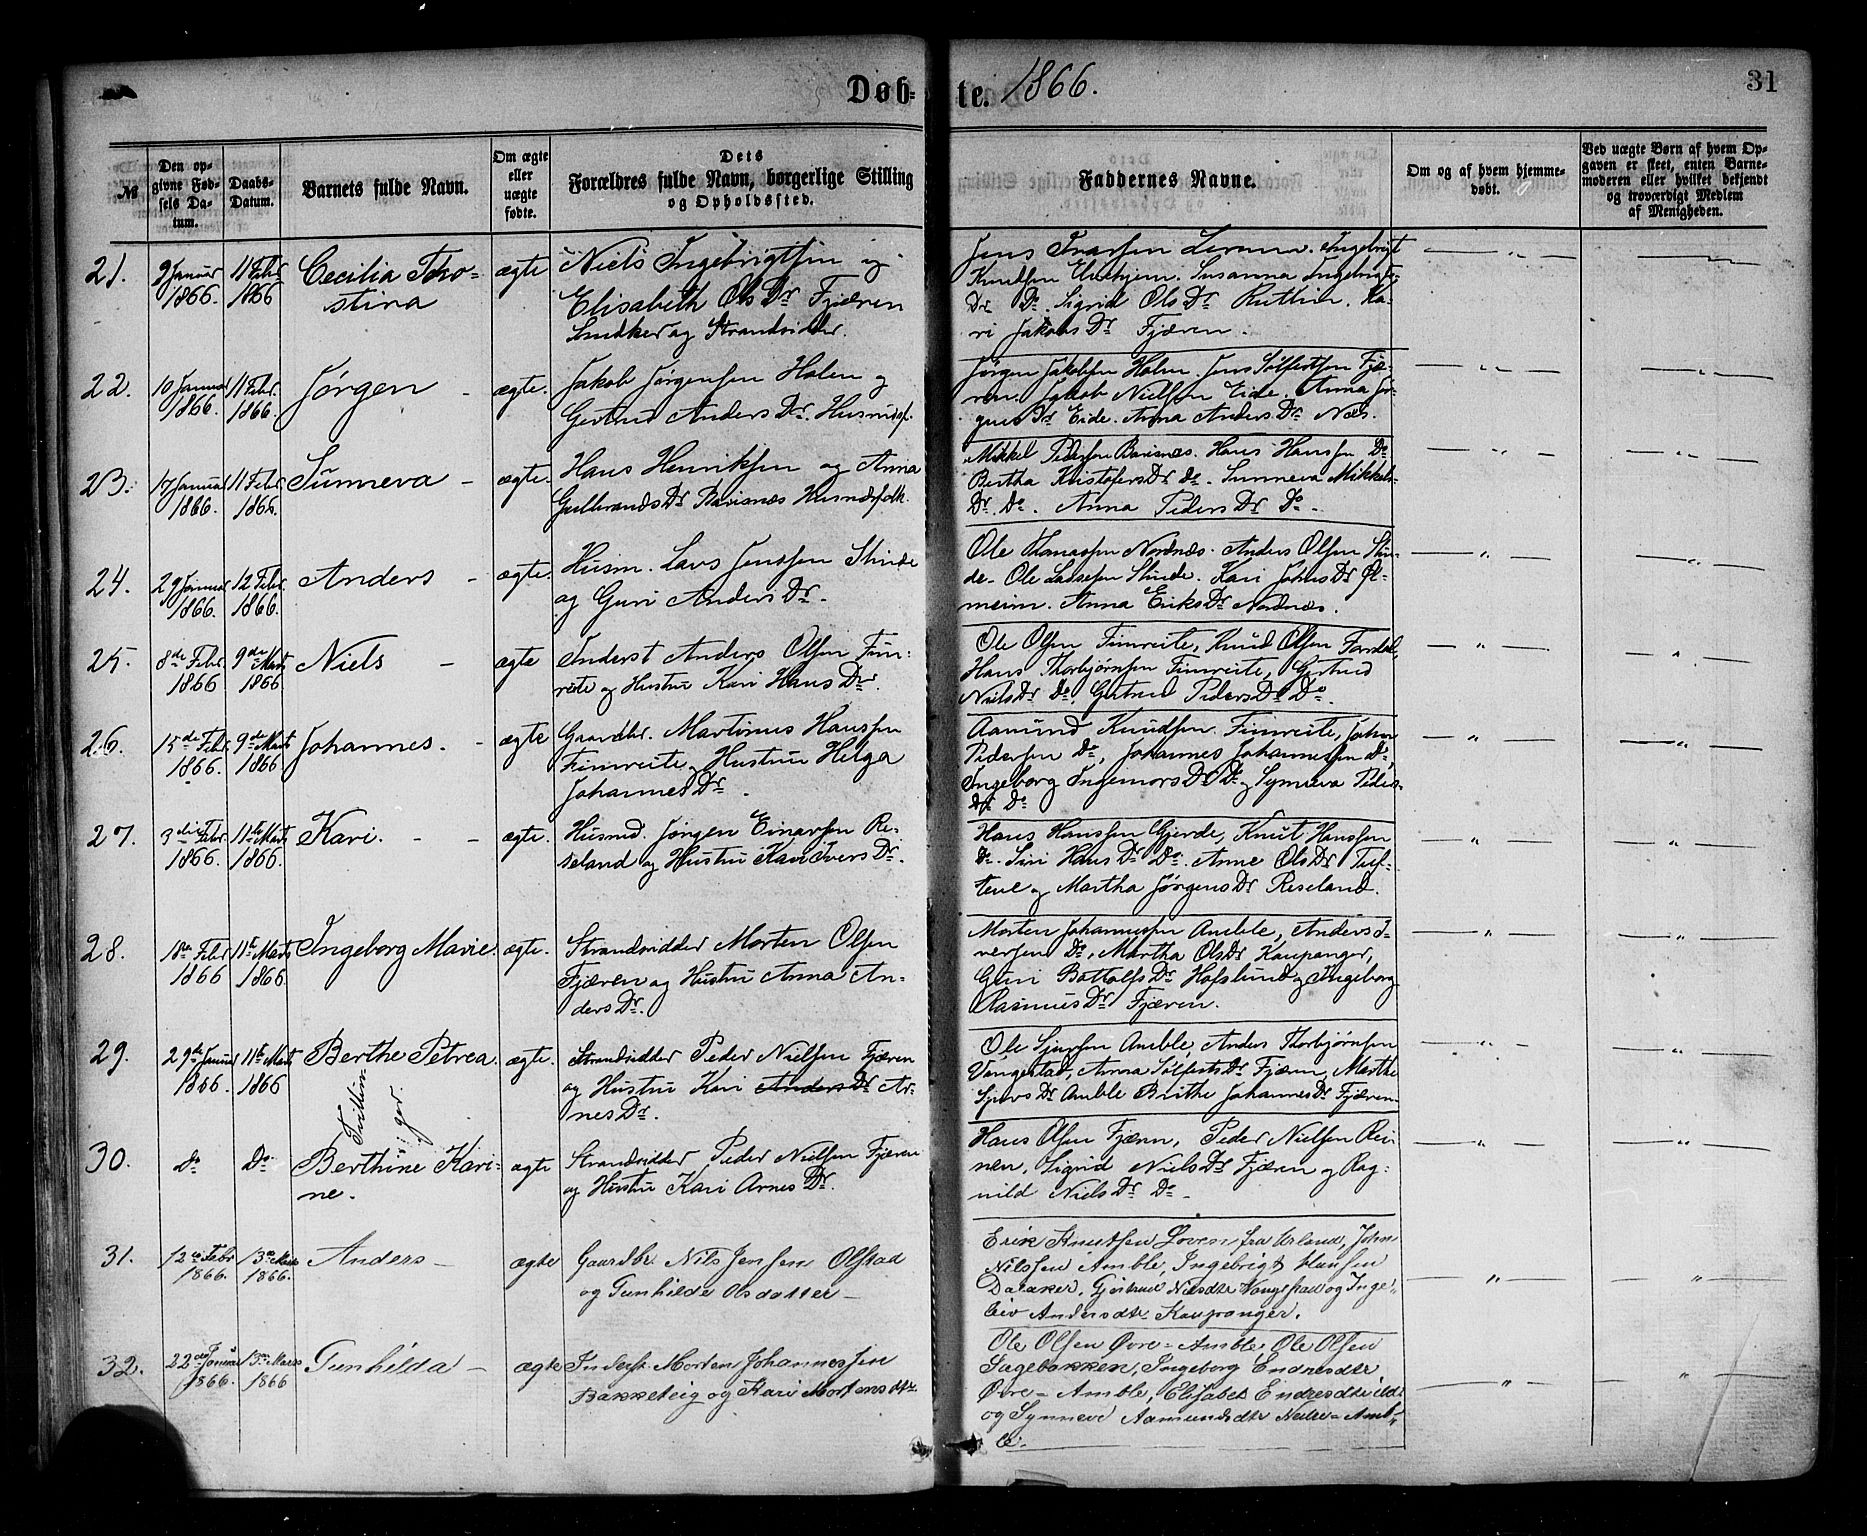 Døb-te. 1866. 31
№
Den opgivne Fødsels Datum.
Daabs-Datum.
Barnets fulde Navn.
Om ægte eller uægte fødte.
Dets Forældres fulde Navn, borgerlige Stilling og Opholdssted.
Faddernes Navne.
Om og af hvem hjemmedøbt.
Ved uægte Børn af hvem Opgaven er skeet, enten Barnemoderen eller hvilket bekjendt og troværdigt Medlem af Menigheden.
21. 9 Januar 1866. 11 Febr 1866 Cecilia Tho-
stina ægte
Niels Ingebrigtsen og
Elisabeth Ols Dr Fjæren
Snedker og Strandsidder.
Ingebrigt
Knudsen Susanna Ingebrigts
Dr Do. Sigrid Ols Dr Ka-
ri Jakobs Dr Fjæren.
22. 10 Januar 1866. 11 Febr. 1866. Jørgen - ægte.
Jakob Jørgensen Holen og
Gertrud Anders Dr. Husmdsf.
Jørgen Jakobsen Holen. Jens Sølfestsen Fjæ-
ren. Jakob Nielsen Eide. Anna Jør-
gens Dr Eide. Anna Anders Dr Næs.
23. 17 Januar 1866. 11 Febr 1866. Sunneva - ægte.
Hans Henriksen og Anna
Gulbrands Dr Husmdsfolk.
Mikkel Pedersen Hans Hansen Do
Bertha Kristofers Dr do. Sunneva Mikkels
Dr. Do. Anna Peders Dr Do.
24. 29 Januar 1866. 12 Febr 1866. Anders - ægte.
Husm. Lars Jensen Skinde
og Guri Anders Dr.
Ole Thomassen Nordnæs. Anders Olsen Skin-
de. Ole Larssen Skinde. Kari Johns Dr Øl-
meim. Anna Eriks Dr Nordnæs.
25. 8de Febr 1866 9de Marts 1866 Niels - ægte
Inderst Anders Olsen Fim-
reite og Hustru Kari Hans Dr.
Ole Olsen Fimreite, Knud Olsen
Hans Thorbjørnsen Fimreite, Gjertrud
Niels Dr do, Gertrud Peders Dr Do.
26. 15de Febr 1866. 9de Marts 1866 Johannes. - ægte
Gaardbr. Martinus Hanssen
Fimreite, Hustru Helga
Johannes Dr.
Aamund Knudsen Fimreite, Johan
Pedersen Do, Johannes Johannessen do,
Ingeborg Ingemors Dr Do og Synneva Peders
Dr Do
27. 3die Febr 1866. 11te Marts 1866. Kari. - - ægte.
Husmd. Jørgen Einarsen Re-
seland og Hustru Kari Ivers Dr.
Hans Hanssen Gjerde, Knut Hanssen
do. Siri Hans Dr Do. Anne Ols Dr Tuf-
tene og Martha Jørgens Dr Reseland.
28. Febr 1866 11te Marts 1866. Ingeborg Marie. ægte.
Strandsidder Morten Olsen
Fjæren og Hustru Anna An-
ders Dr.
Morten Johannessen Amble, Anders I-
versen Do, Martha Ols Dr Kaupanger,
Guri Bottolfs Dr Hofslund og Ingeborg
Rasmus Dr Fjæren.
29. 29de Januar 1866. 11te Marts 1866 Berthe Petrea. ægte.
Tvillin-
ger.
Strandsidder Peder Nielsen Fjæren
og Hustru Kari Anders Dr Ar-
nes Dr.
Ole Sjursen Amble, Anders Thorbjørnsen
Vangestad, Anna Sølfests Dr Fjæren, Marthe
Sjurs Dr Amble Brithe Johannes Dr Fjæren
30. do Do Berthine Kari-
ne. ægte
Strandsidder Peder Nielsen Fjæren
og Hustru Kari Arnes Dr.
Hans Olsen Fjæren, Peder Nielsen Rei-
nen, Sigrid Niels Dr Fjæren og Rag-
nild Niels Dr Do -
31. 12te Febr 1866. 1866. Anders - ægte
Gaardbr. Nils Jensen Olstad
og Gunhilde Olsdatter -
Erik Knutsen Loven fra Urland, John
Nilssen Amble, Ingebrigt Hansen
Dalaker, Gjertrud Nilsdtr Vangestad og Inge-
leiv Andersdtr Kaupanger.
32. 22de Januar 1866. 1866 Gunhilda - ægte
Inderst. Morten Johannessen
Bakketeig og Kari Mortensdtr.
Ole Olsen Øvre-Amble, Ole Olsen
Sagebakken, Ingeborg Endresdtr
Øvre-Amble, Elisabet Endresdtr
og Synneve Aamundsdtr Nedre-Amb-
le.